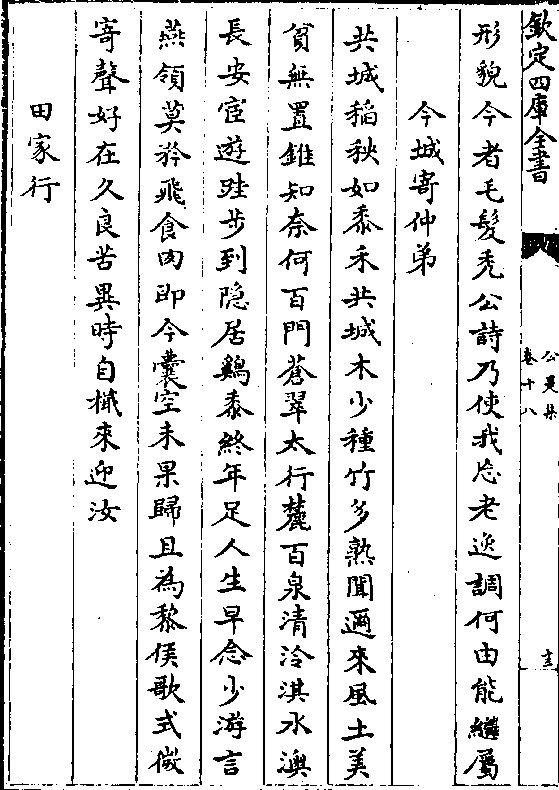 欽定四庫全書
公是集
卷十八
十三
形貌今者毛髮禿公詩乃使我忘老逸調何由能繼屬
今城寄仲弟
共城稻秧如黍禾共城木少種竹多熟聞邇來風土美
貧無置錐知奈何百門蒼翠太行麓百泉清泠淇水澳
長安宦遊跬步到隠居鷄黍終年足人生早念少游言
燕頷莫矜飛食肉即今囊空未果歸且為黎侯歌式微
寄聲好在久良苦異時自檝來迎汝
田家行